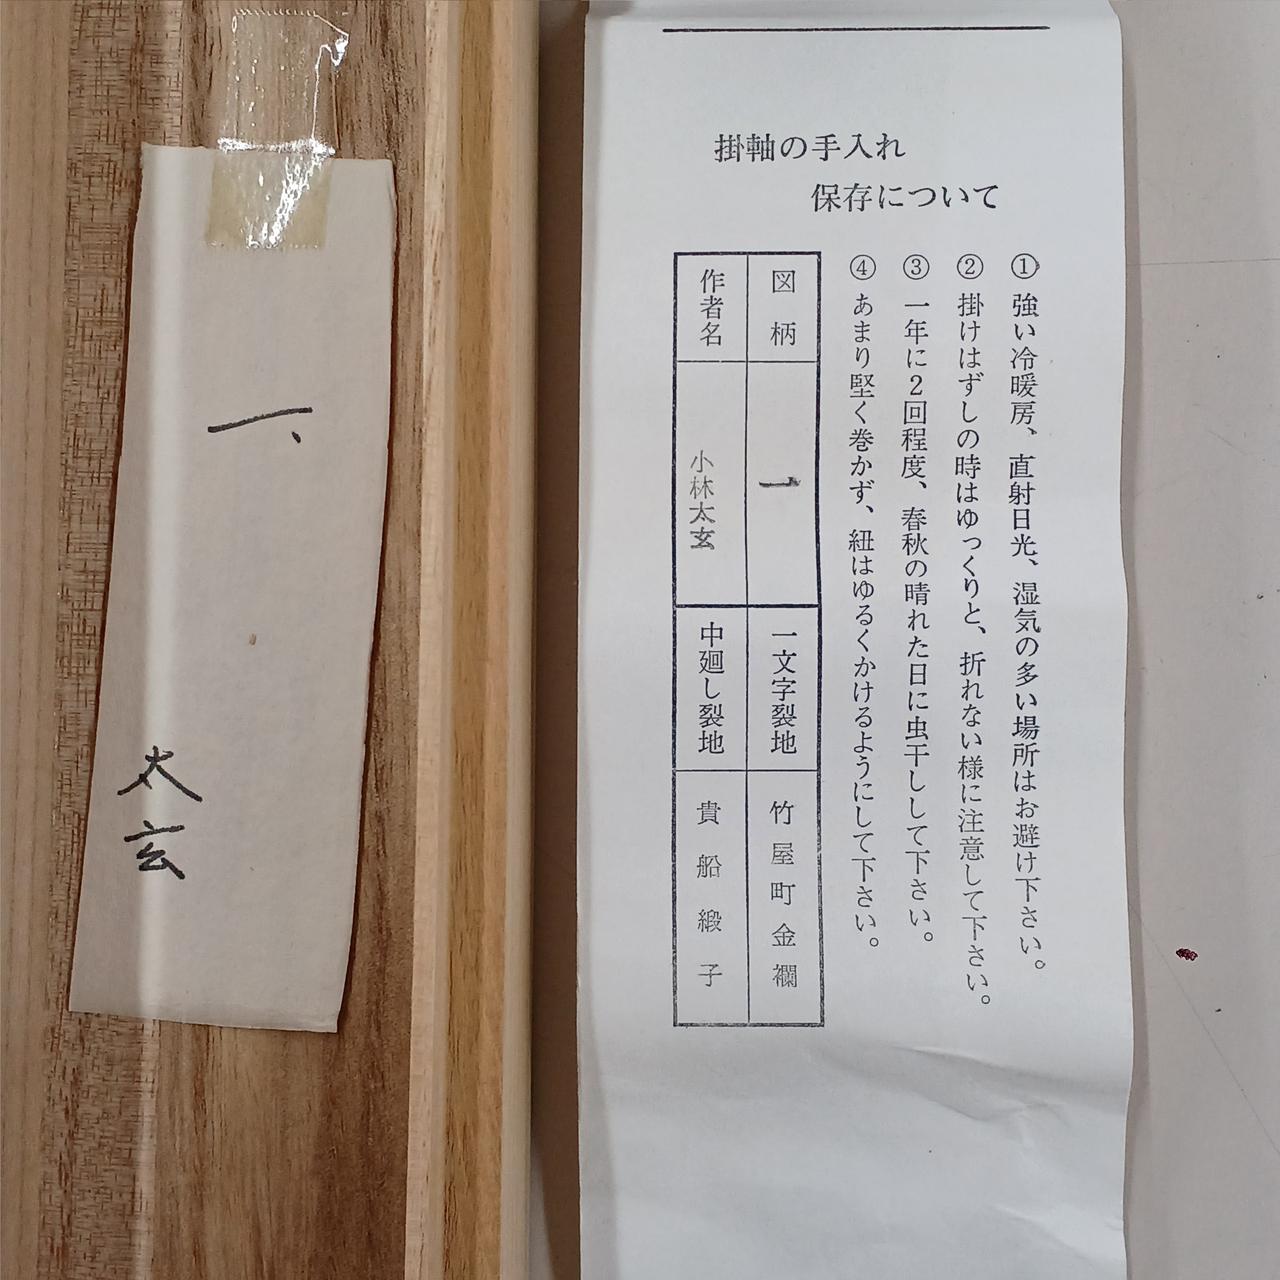 一、
太玄
掛軸の手入れ
保存について
① 強い冷暖房、直射日光、湿気の多い場所はお避け下さい。
② 掛けはずしの時はゆっくりと、折れない様に注意して下さい。
③ 一年に2回程度、春秋の晴れた日に虫干しして下さい。
④ あまり堅く巻かず、紐はゆるくかけるようにして下さい。
図柄 一 一文字裂地 竹屋町金襴
作者名 小林太玄 中廻し裂地 貴船緞子